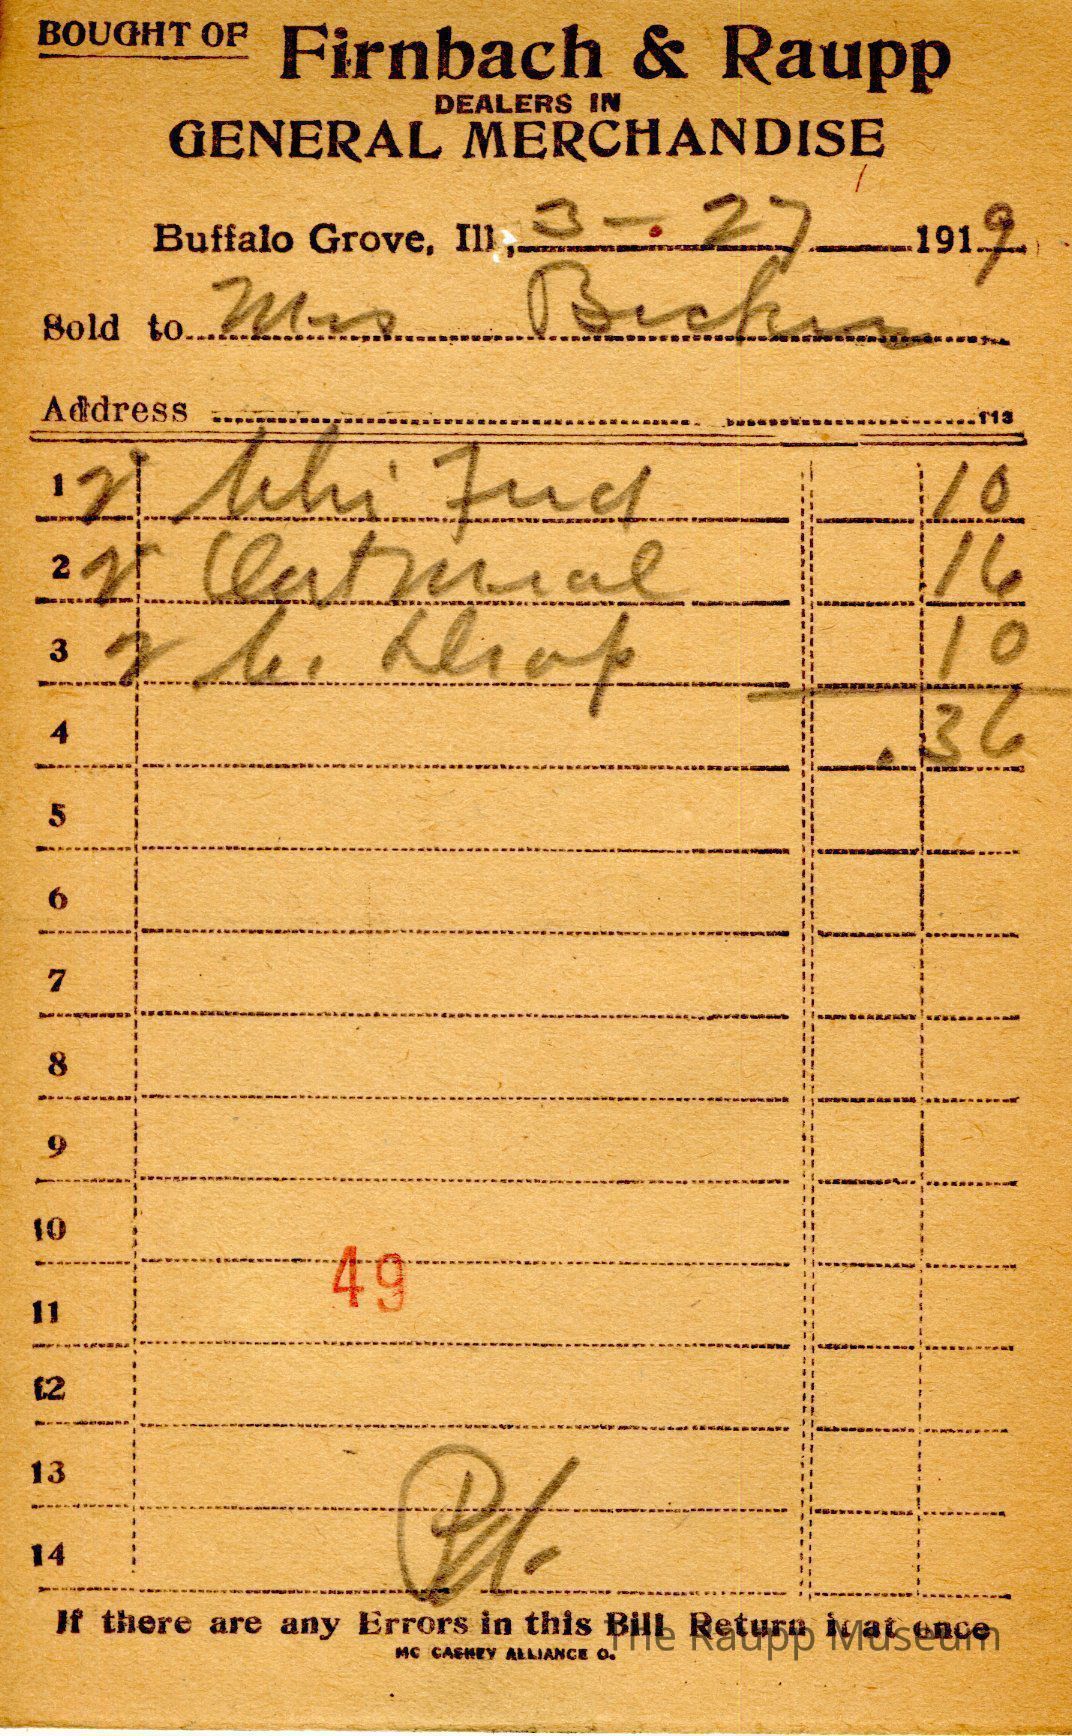 BOUGHT OF Firnbach & Raupp
DEALERS IN
GENERAL MERCHANDISE
Buffalo Grove, Ill., 3-27 1919
Sold to Mrs
Address 113
1 10
2 Oatmeal 16
3 Drop 10
4 .36
5
6
7
8
9
10
49
11
12
13
14
If there are any Errors in this Bill Return it at once
The Raupp Museum
MC CASKEY ALLIANCE O.